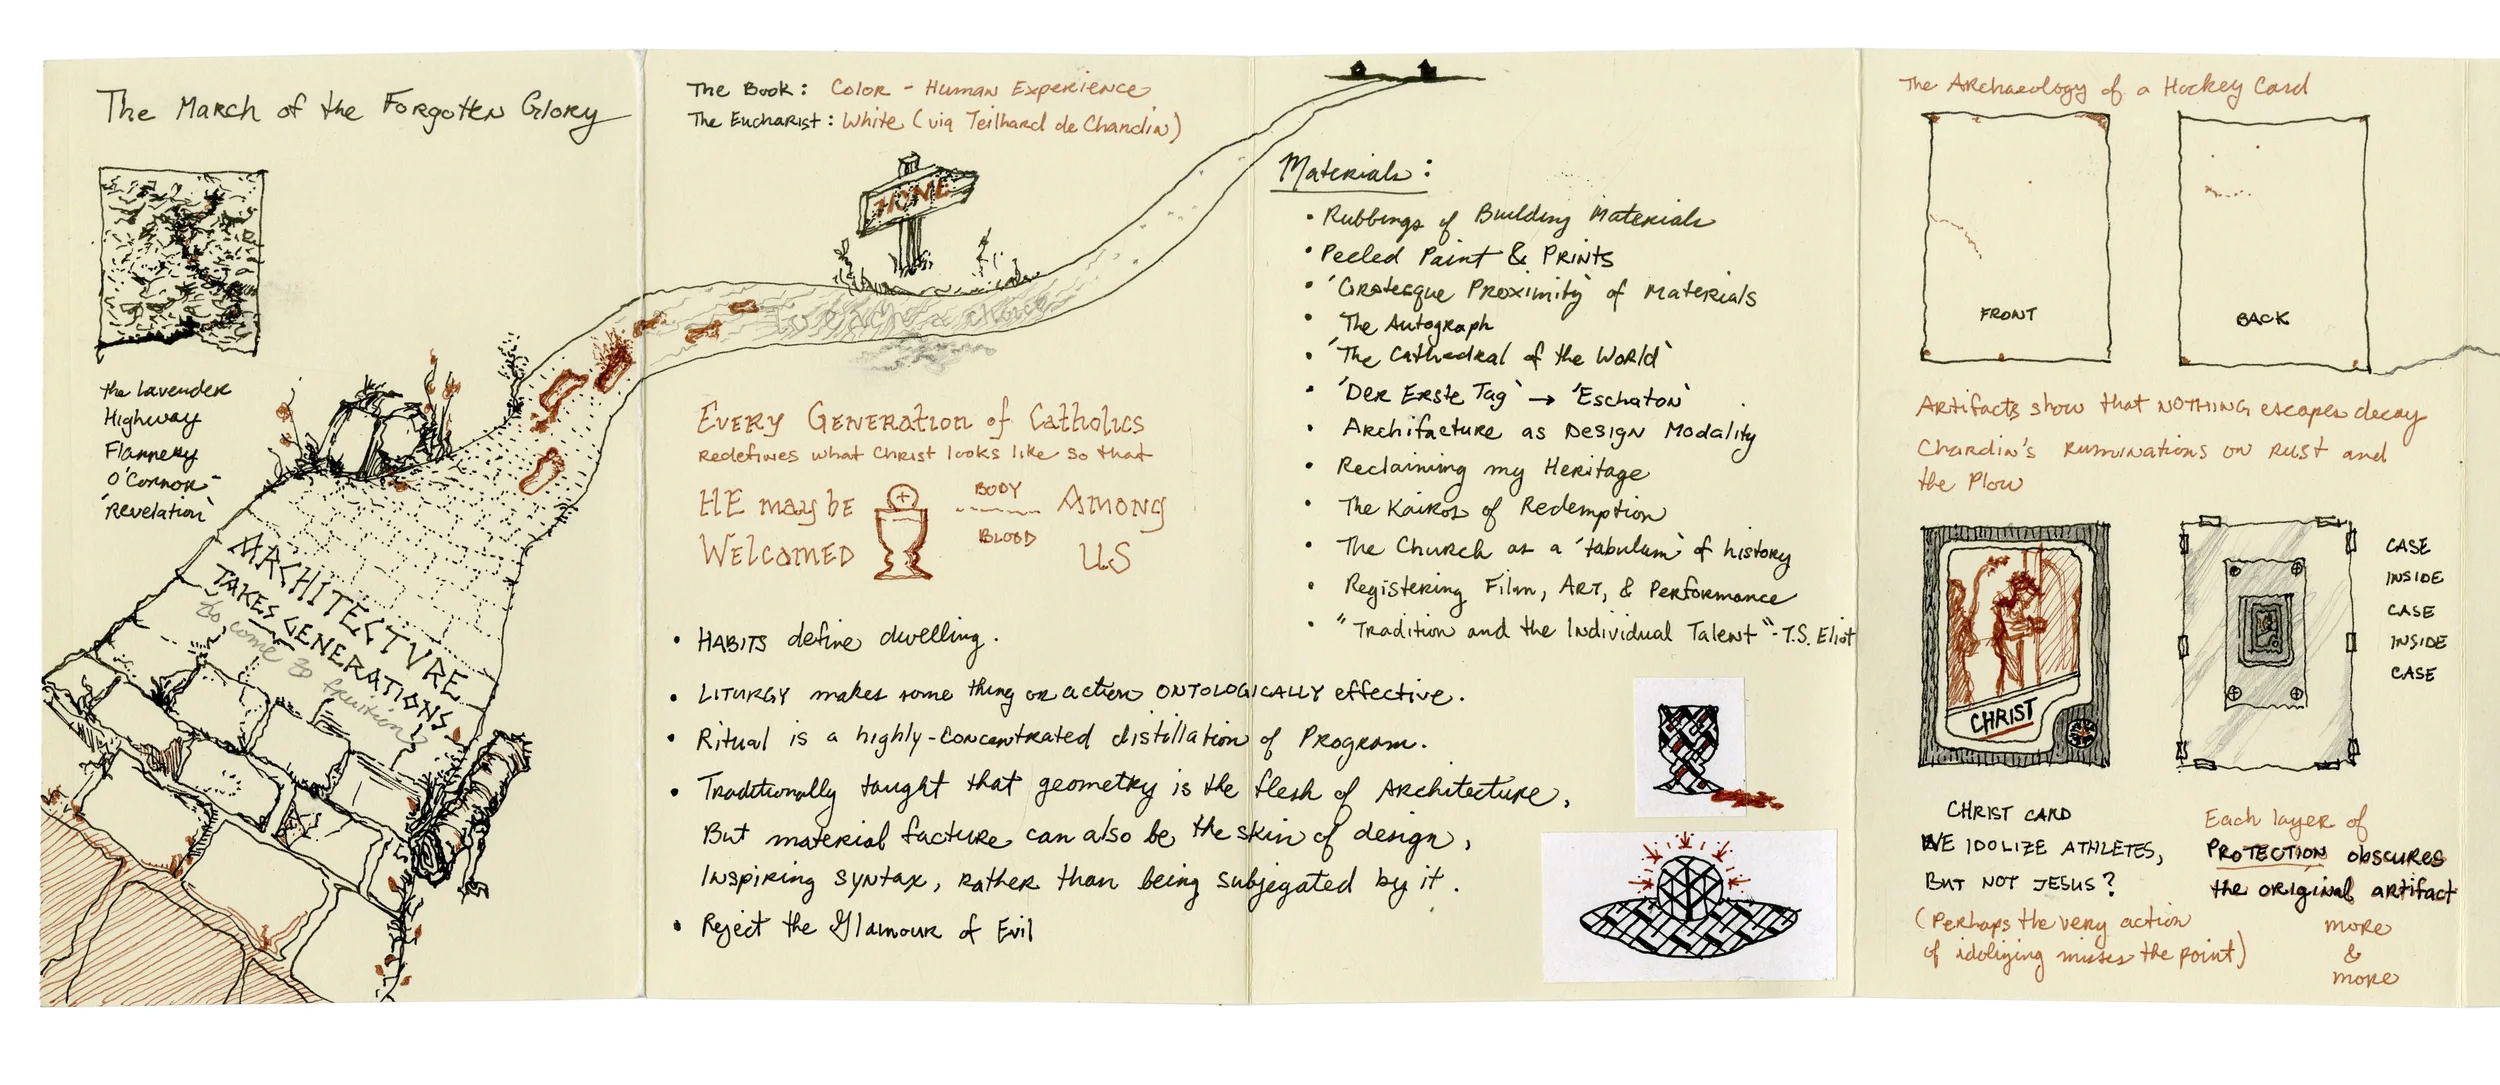 The March of the Forgotten Glory
the Lavender
Highway
Flannery
O'Connor
'Revelation'
ARCHITECTURE
TAKES GENERATIONS
to come to fruition
The Book: Color - Human Experience
The Eucharist: White (via Teilhard de Chardin)
HOME
Every Generation of Catholics
Redefines what Christ looks like so that
HE may be BODY Among
Welcomed BLOOD US
• HABITS define dwelling.
• LITURGY makes some thing or action ONTOLOGICALLY effective.
• Ritual is a highly-concentrated distillation of Program.
• Traditionally taught that geometry is the flesh of Architecture,
But material facture can also be the skin of design,
Inspiring syntax, rather than being subjegated by it.
• Reject the Glamour of Evil
Materials:
• Rubbings of Building Materials
• Peeled Paint & Prints
• 'Grotesque Proximity' of Materials
• The Autograph
• 'The Cathedral of the World'
• 'Der Erste Tag' → 'Eschaton'
• Archifacture as Design Modality
• Reclaiming my Heritage
• The Kairos of Redemption
• The Church as a 'tabulum' of history
• Registering Film, Art, & Performance
• "Tradition and the Individual Talent" - T.S. Eliot
The Archaeology of a Hockey Card
FRONT
BACK
Artifacts show that NOTHING escapes decay
Chardin's Ruminations on Rust and
the Plow
CHRIST
CASE
INSIDE
CASE
INSIDE
CASE
CHRIST CARD
WE IDOLIZE ATHLETES,
BUT NOT JESUS?
(Perhaps the very action
of idolizing misses the point)
Each layer of
PROTECTION obscures
the original artifact
more
&
more